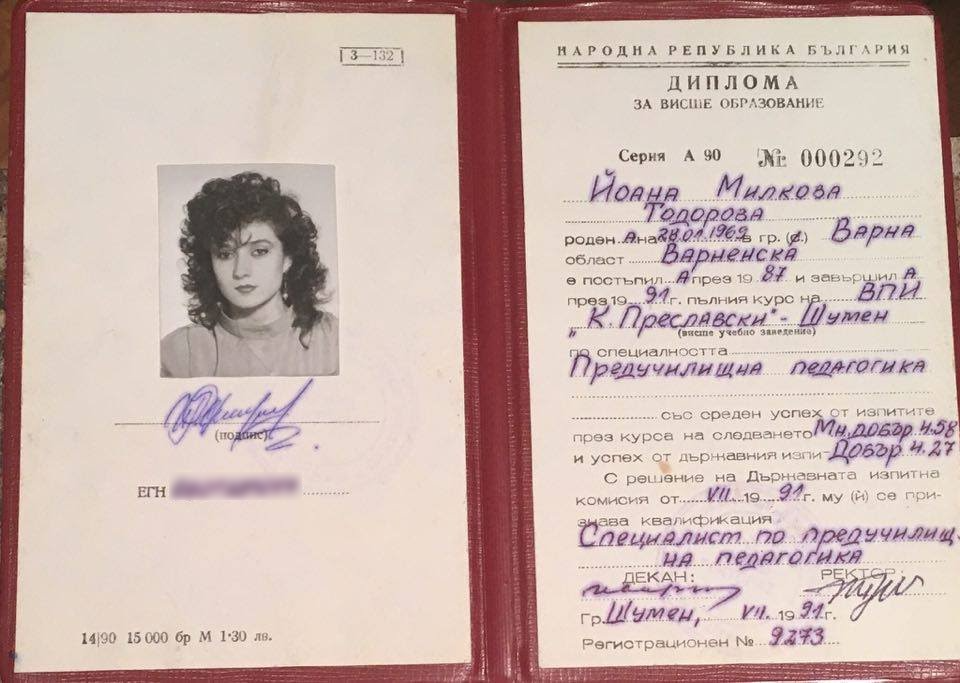 3—132
(подпис)
ЕГН
14|90 15 000 бр М 1·30 лв.
НАРОДНА РЕПУБЛИКА БЪЛГАРИЯ
ДИПЛОМА
ЗА ВИСШЕ ОБРАЗОВАНИЕ
Серия А 90 № 000292
Йоана Милкова
Тодорова
роден А на 28.01.1969 в гр. (с.) Варна
област Варненска
е постъпил А през 19 87 и завършил А
през 19 91 г. пълния курс на ВПИ
„К. Преславски" - Шумен
(висше учебно заведение)
по специалността
Предучилищна педагогика
със среден успех от изпитите
през курса на следването Мн. добър 4.58
и успех от държавния изпит Добър 4.27
С решение на Държавната изпитна
комисия от VII. 19 91 г. му (й) се при-
знава квалификация
Специалист по предучилищ-
на педагогика
ДЕКАН: РЕКТОР:
Гр. Шумен, VII. 19 91 г.
Регистрационен № 9273